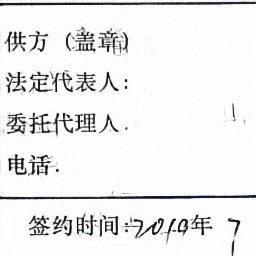 供方（盖章）
法定代表人：
委托代理人.
电话.
签约时间：2019年 7